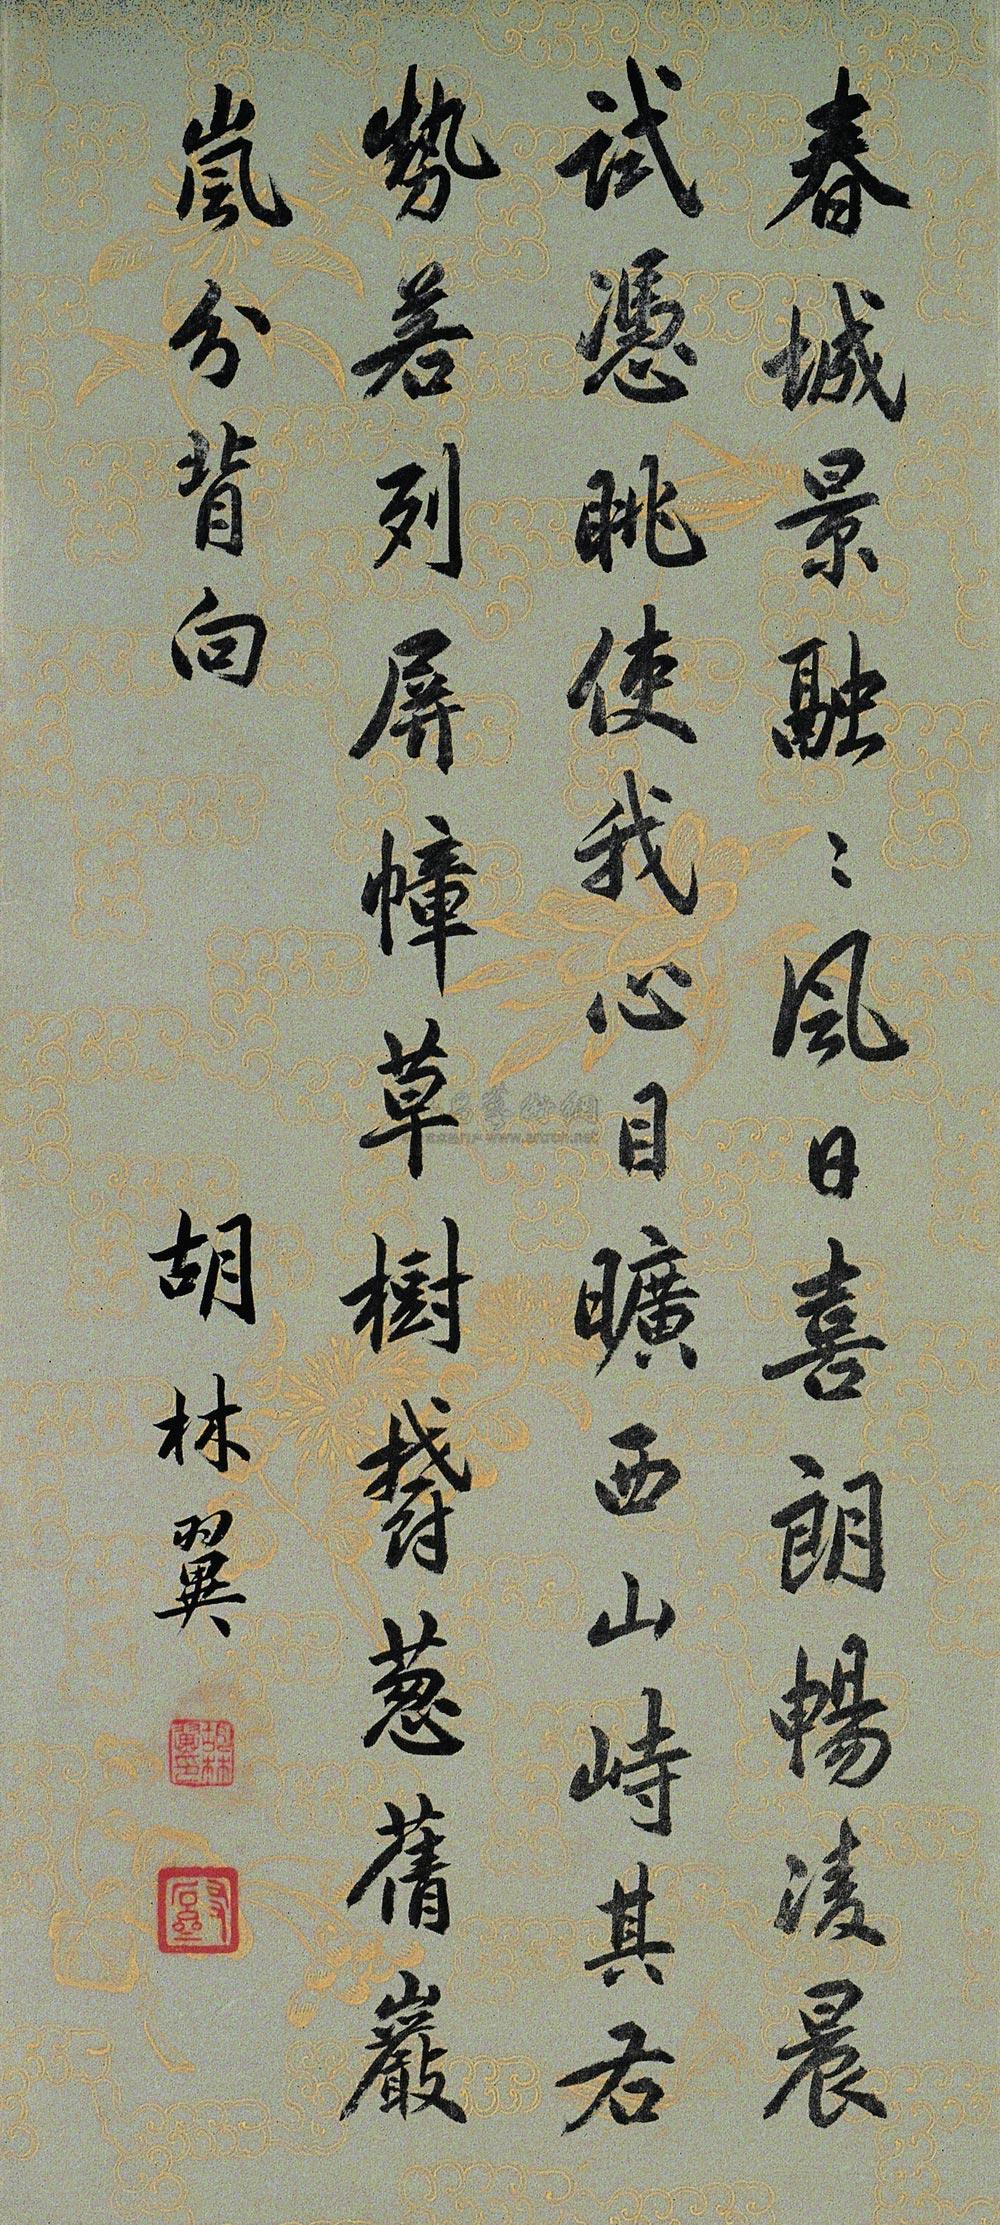 春城景融〻風日喜朗暢淩晨
試憑眺使我心目曠西山峙其右
勢若列屏幛草樹鬱蔥蒨巖
嵐分背向
胡林翼
胡林翼印
www.artrch.net